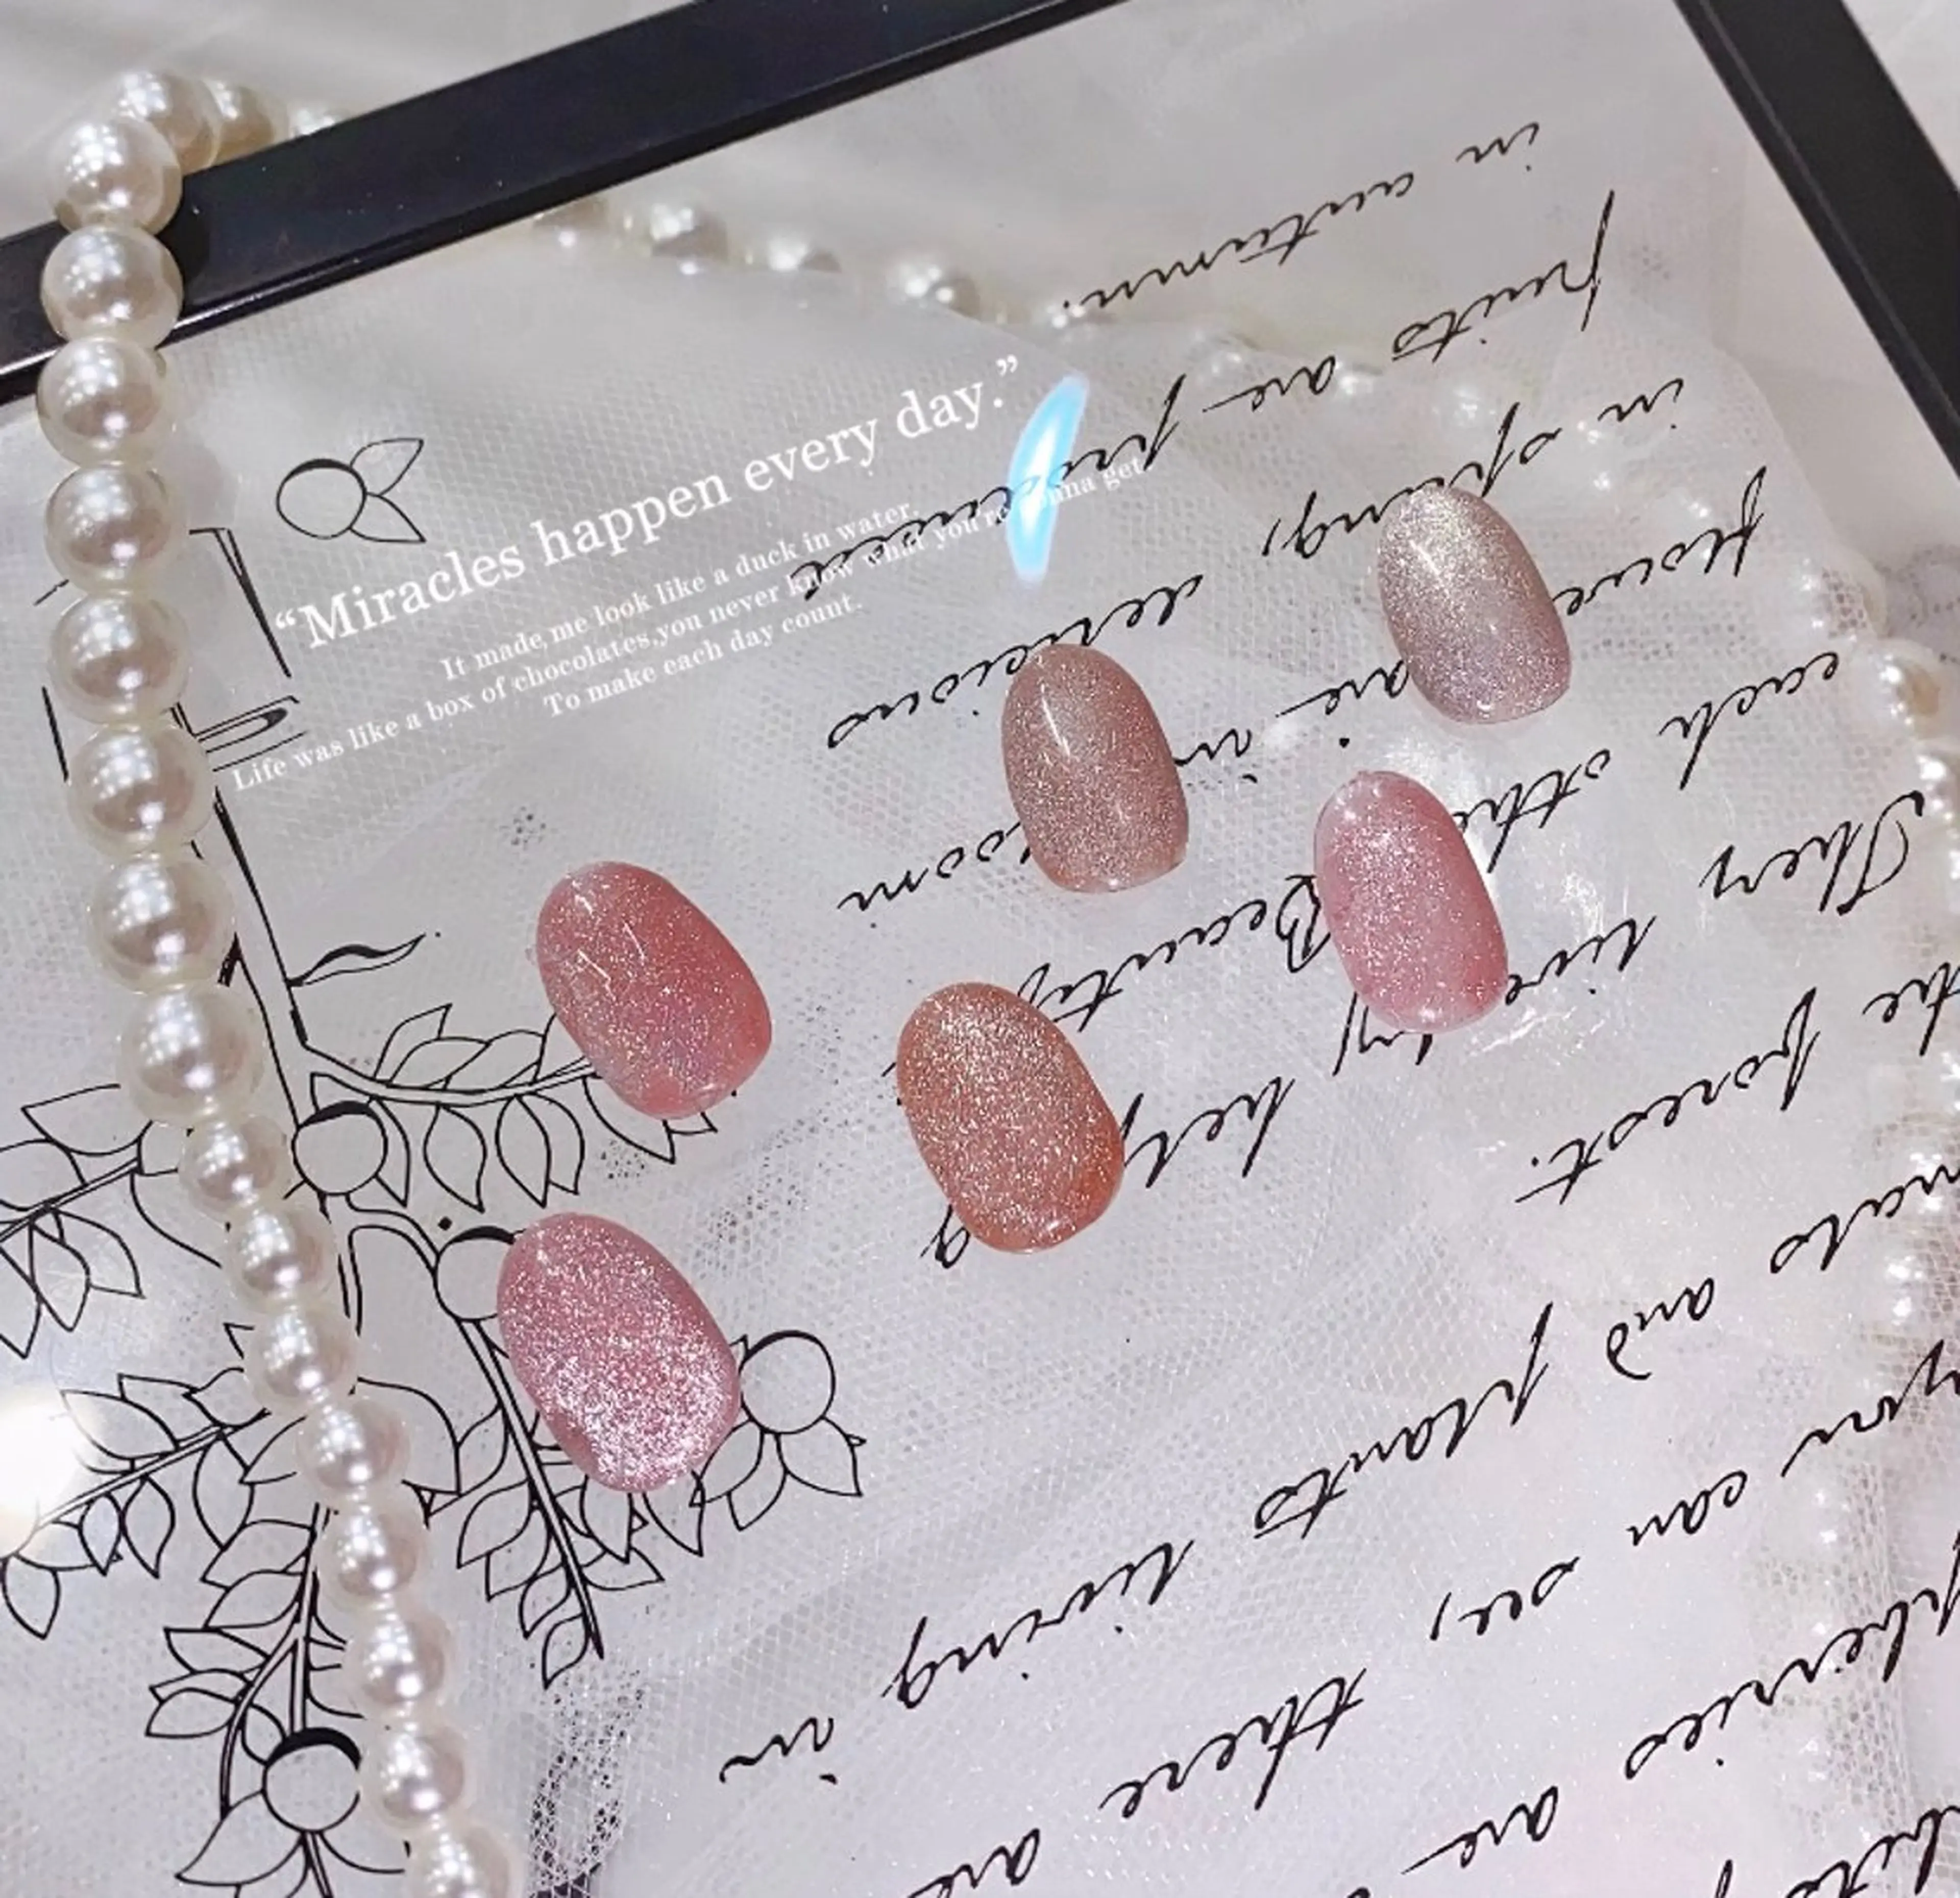 “Miracles happen every day.”
It made,me look like a duck in water.
Life was like a box of chocolates,you never know what you're gonna get
To make each day count.
are
can see, there are
and plants living in
the forest.
They live by helping
each other. Beautiful
flowers are in bloom
in spring, delicious
fruits are produced
in autumn.